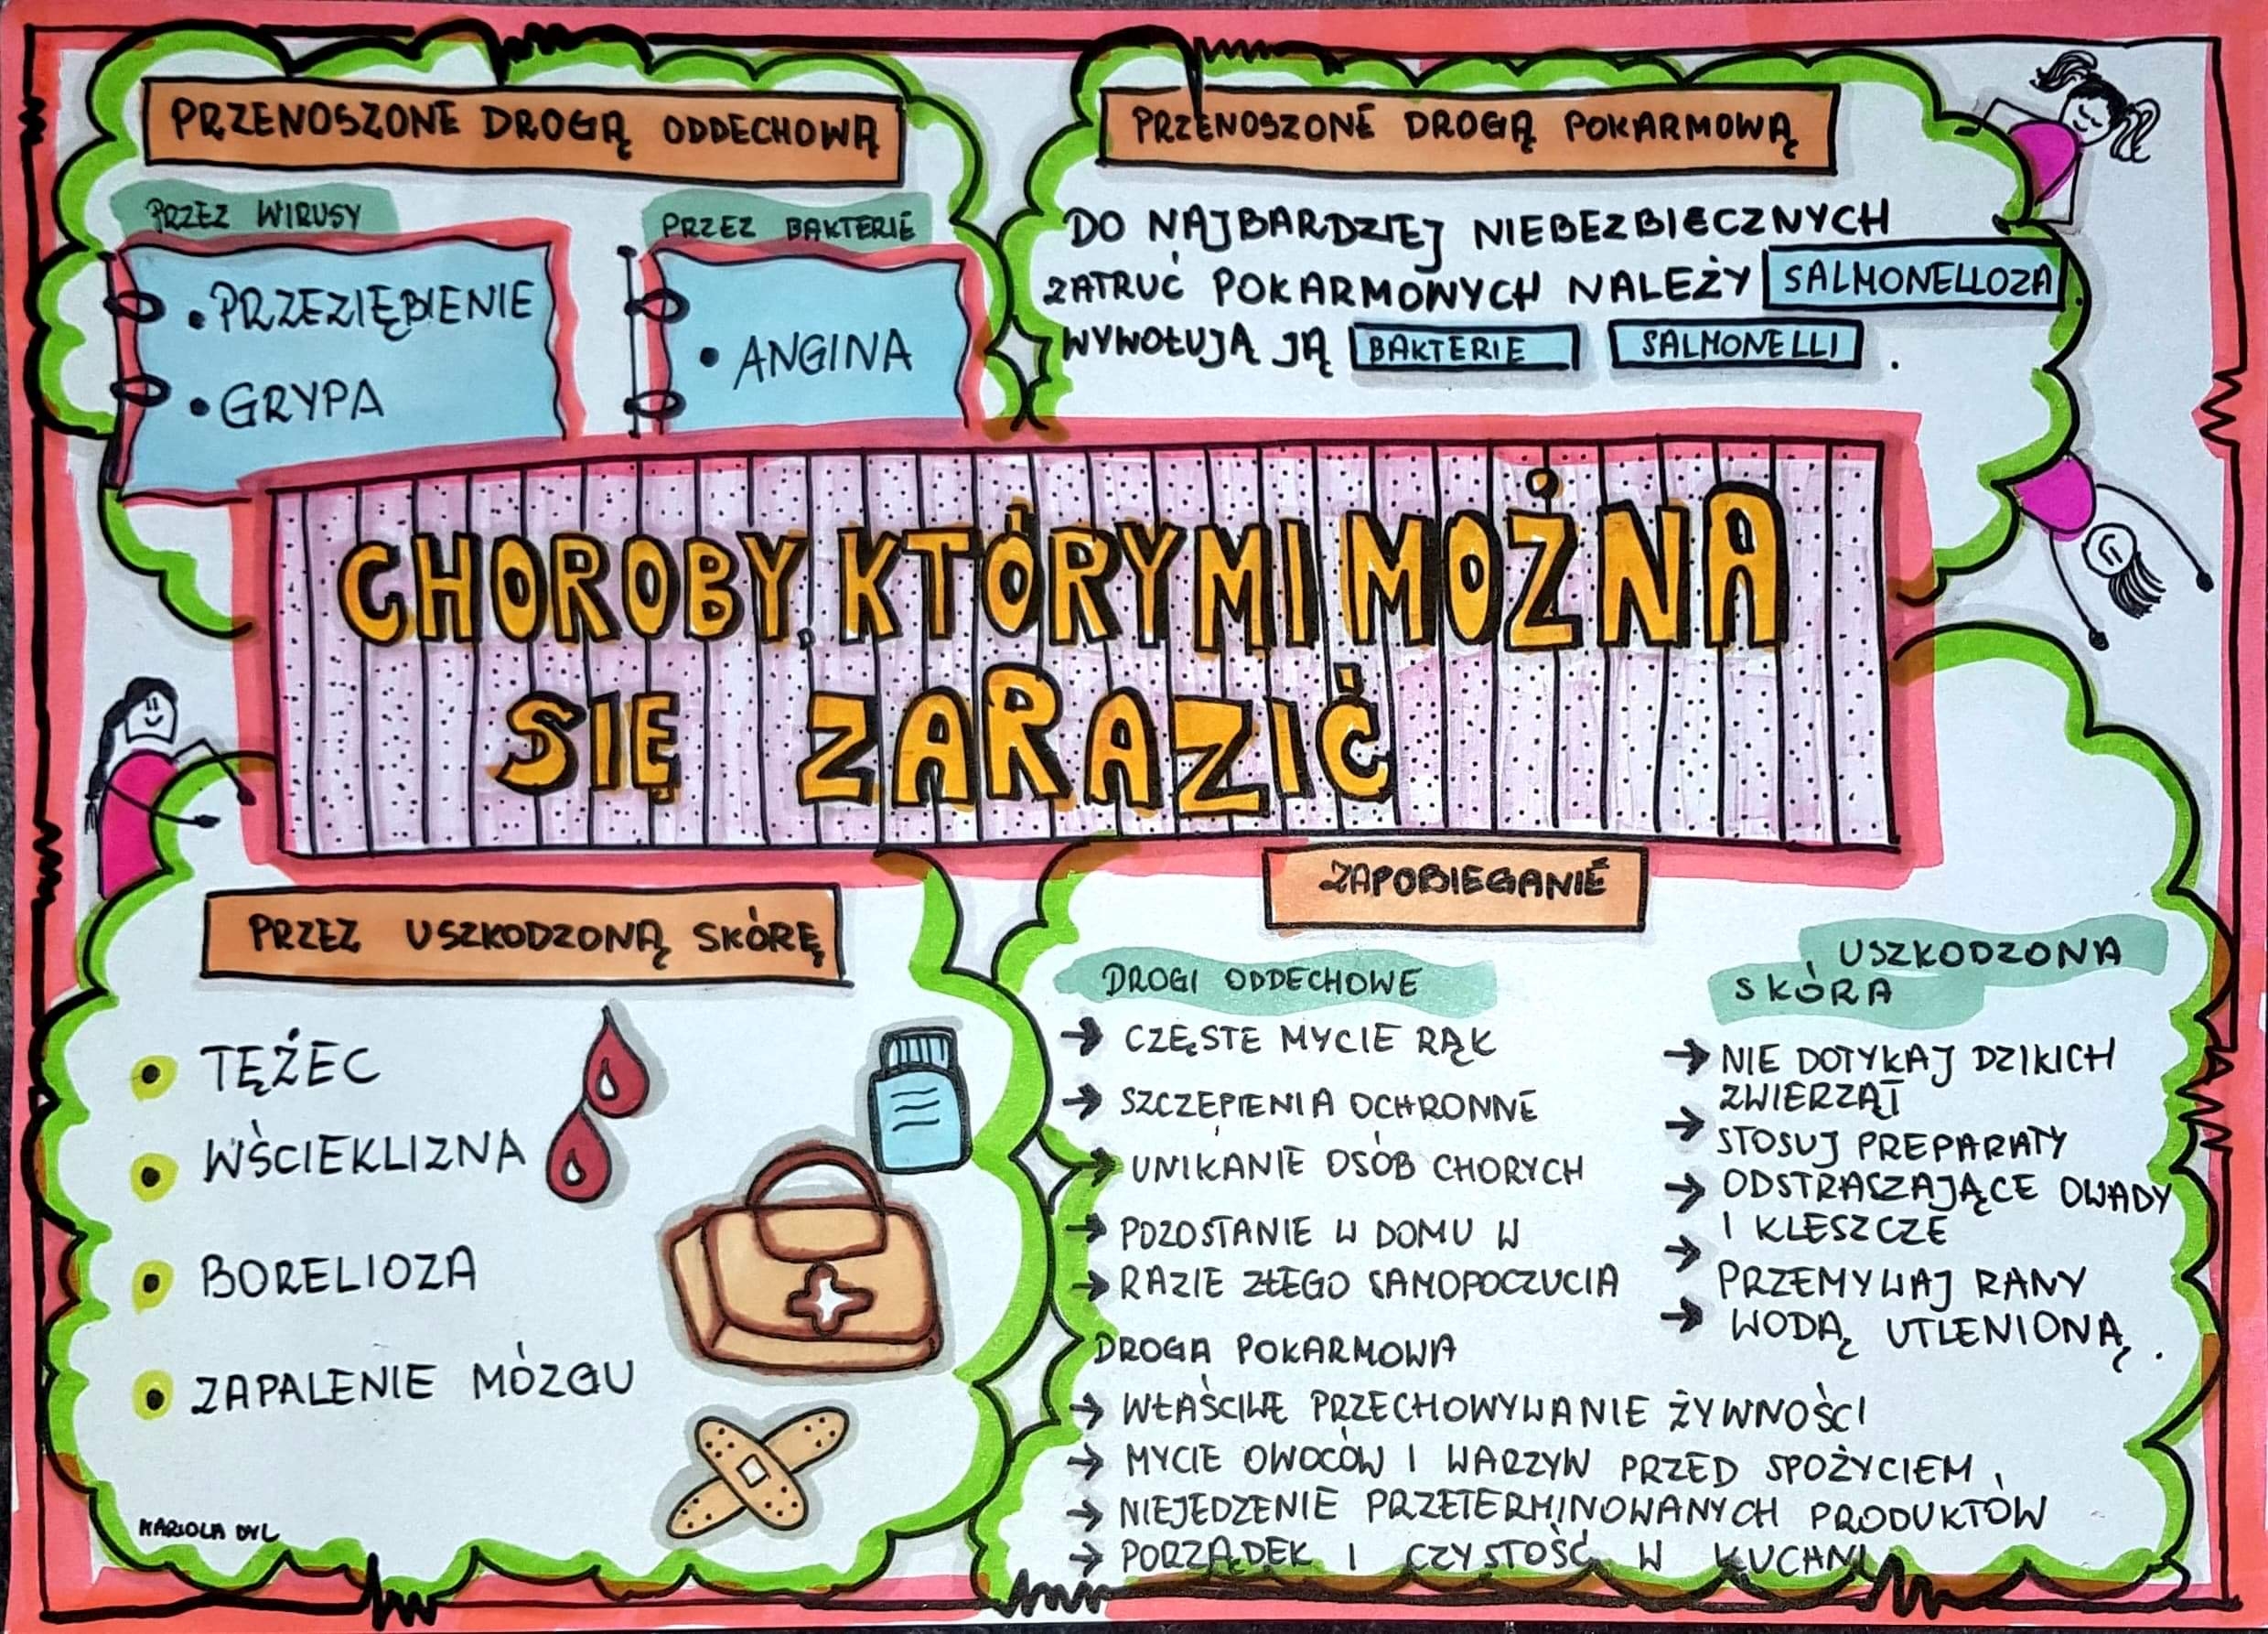 PRZENOSZONE DROGĄ ODDECHOWĄ
PRZEZ WIRUSY
• PRZEZIĘBIENIE
• GRYPA
PRZEZ BAKTERIE
• ANGINA
PRZENOSZONE DROGĄ POKARMOWĄ
DO NAJBARDZIEJ NIEBEZBIECZNYCH
ZATRUĆ POKARMOWYCH NALEŻY SALMONELLOZA.
WYWOŁUJĄ JĄ BAKTERIE SALMONELLI.
CHOROBY, KTÓRYMI MOŻNA
SIĘ ZARAZIĆ
PRZEZ USZKODZONĄ SKÓRĘ
• TĘŻEC
• WŚCIEKLIZNA
• BORELIOZA
• ZAPALENIE MÓZGU
MARIOLA DYL
ZAPOBIEGANIE
DROGI ODDECHOWE
→ CZĘSTE MYCIE RĄK
→ SZCZEPIENIA OCHRONNE
→ UNIKANIE OSÓB CHORYCH
→ POZOSTANIE W DOMU W
→ RAZIE ZŁEGO SAMOPOCZUCIA
USZKODZONA
SKÓRA
→ NIE DOTYKAJ DZIKICH
ZWIERZĄT
→ STOSUJ PREPARATY
→ ODSTRASZAJĄCE OWADY
I KLESZCZE
→ PRZEMYWAJ RANY
→ WODĄ UTLENIONĄ.
DROGA POKARMOWA
→ WŁAŚCIWE PRZECHOWYWANIE ŻYWNOŚCI
→ MYCIE OWOCÓW I WARZYW PRZED SPOŻYCIEM,
→ NIEJEDZENIE PRZETERMINOWANYCH PRODUKTÓW
→ PORZĄDEK I CZYSTOŚĆ W KUCHNI